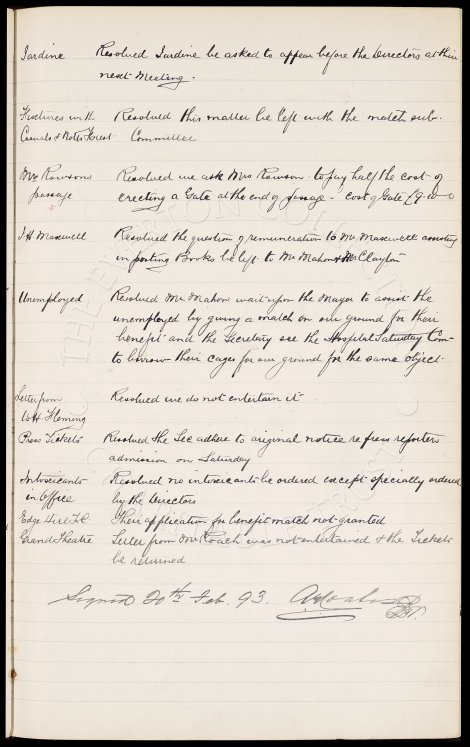 Jardine Resolved Jardine be asked to appear before the Directors at their
next Meeting.
Fixtures with Resolved this matter be left with the match sub.
Casuals & Notts Forest Committee
Mrs Rowsons Resolved we ask Mrs Rowson to pay half the cost of
passage erecting a Gate at the end of passage - cost of Gate £9-10-0
J H Maxwell Resolved the question of remuneration to Mr Maxwell assisting
in posting Books be left to Mr Mahon & Mr Clayton
Unemployed Resolved Mr Mahon wait upon the Mayor to assist the
unemployed by giving a match on our ground for their
benefit and the Secretary see the Hospital Saturday Com
to borrow their cages for our ground for the same object.
Letter from Resolved we do not entertain it
W H Fleming
Press Tickets Resolved the Sec adhere to original notice re press reporters
admission on Saturday
Intoxicants Resolved no intoxicants be ordered except specially ordered
in Office by the Directors
Edge Hill F.C. Their application for benefit match not granted
Grand Theatre Letter from Mr Roach was not entertained & the Tickets
be returned
Signed 20th Feb. 93.